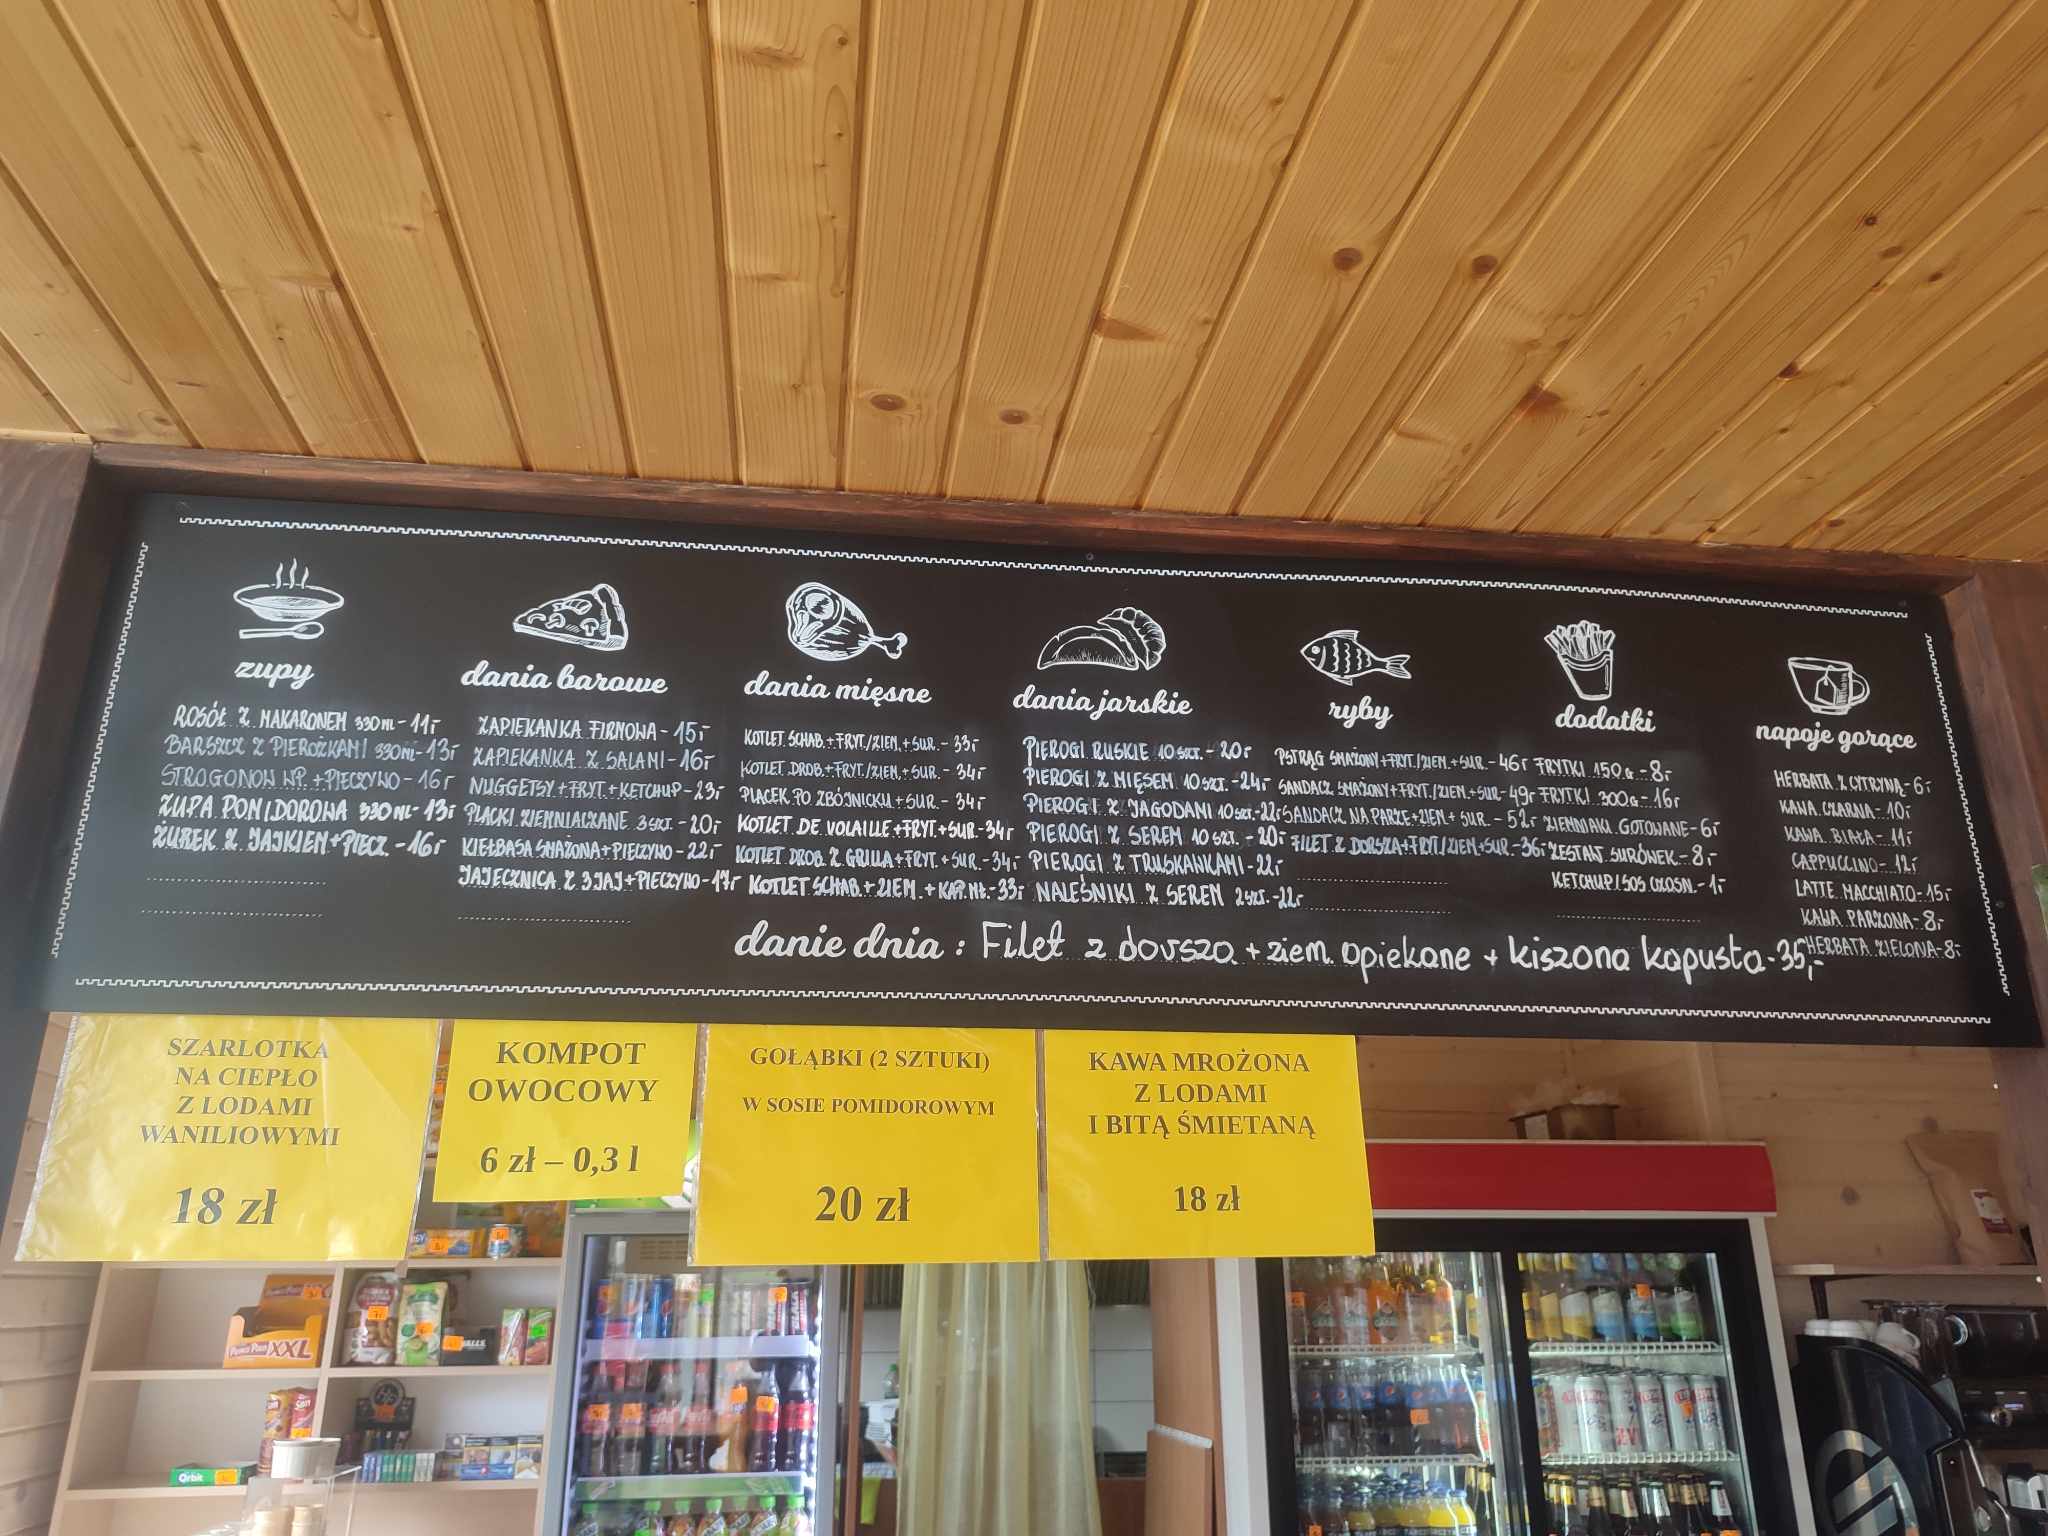 zupy
ROSÓŁ Z MAKARONEM 330ml - 11,-
BARSZCZ Z PIEROŻKAMI 330ml - 13,-
STROGONOW WP. + PIECZYWO - 16,-
ZUPA POMIDOROWA 330ml - 13,-
ŻUREK Z JAJKIEM + PIECZ. - 16,-
dania barowe
ZAPIEKANKA FIRMOWA - 15,-
ZAPIEKANKA Z SALAMI - 16,-
NUGGETSY + FRYT. + KETCHUP - 23,-
PLACKI ZIEMNIACZANE 3 SZT. - 20,-
KIEŁBASA SMAŻONA + PIECZYWO - 22,-
JAJECZNICA Z 3 JAJ + PIECZYWO - 17,-
dania mięsne
KOTLET SCHAB. + FRYT./ZIEM. + SUR. - 33,-
KOTLET DROB. + FRYT./ZIEM. + SUR. - 34,-
PLACEK PO ZBÓJNICKU + SUR. - 34,-
KOTLET DE VOLAILLE + FRYT. + SUR. - 34,-
KOTLET DROB. Z GRILLA + FRYT. + SUR. - 34,-
KOTLET SCHAB. + ZIEM. + KAP. MŁ. - 33,-
dania jarskie
PIEROGI RUSKIE 10 SZT. - 20,-
PIEROGI Z MIĘSEM 10 SZT. - 24,-
PIEROGI Z JAGODAMI 10 SZT. - 22,-
PIEROGI Z SEREM 10 SZT. - 20,-
PIEROGI Z TRUSKAWKAMI - 22,-
NALEŚNIKI Z SEREM 2 SZT. - 22,-
ryby
PSTRĄG SMAŻONY + FRYT./ZIEM. + SUR. - 46,-
SANDACZ SMAŻONY + FRYT./ZIEM. + SUR - 49,-
SANDACZ NA PARZE + ZIEM + SUR. - 52,-
FILET Z DORSZA + FRYT./ZIEM. + SUR. - 36,-
dodatki
FRYTKI 150g - 8,-
FRYTKI 300g - 16,-
ZIEMNIAKI GOTOWANE - 6,-
ZESTAW SURÓWEK - 8,-
KETCHUP/SOS CZOSN. - 1,-
napoje gorące
HERBATA Z CYTRYNĄ - 6,-
KAWA CZARNA - 10,-
KAWA BIAŁA - 11,-
CAPPUCCINO - 12,-
LATTE MACCHIATO - 15,-
KAWA PARZONA - 8,-
HERBATA ZIELONA - 8,-
danie dnia : Filet z dorsza + ziem. opiekane + kiszona kapusta - 35,-
SZARLOTKA
NA CIEPŁO
Z LODAMI
WANILIOWYMI
18 zł
KOMPOT
OWOCOWY
6 zł – 0,3 l
GOŁĄBKI (2 SZTUKI)
W SOSIE POMIDOROWYM
20 zł
KAWA MROŻONA
Z LODAMI
I BITĄ ŚMIETANĄ
18 zł
XXL
Orbit